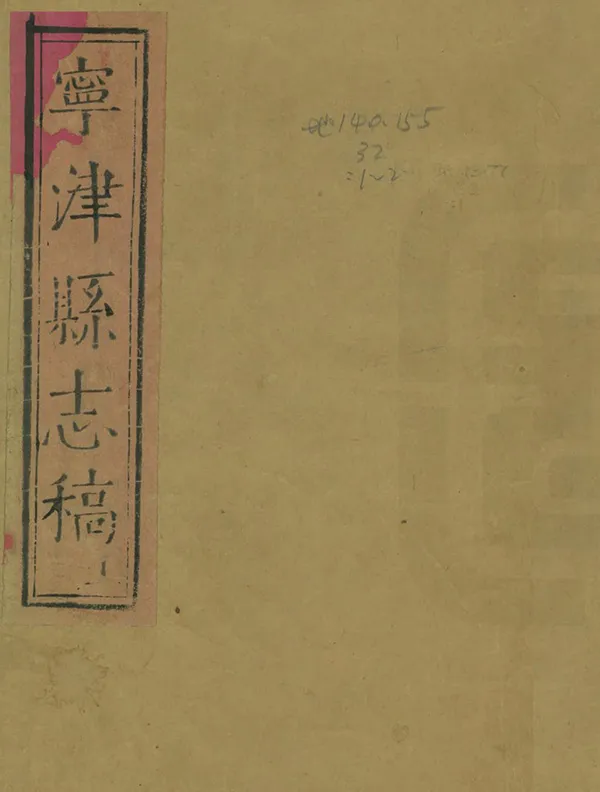 寧津縣志稿
地140.155
32
:1~2